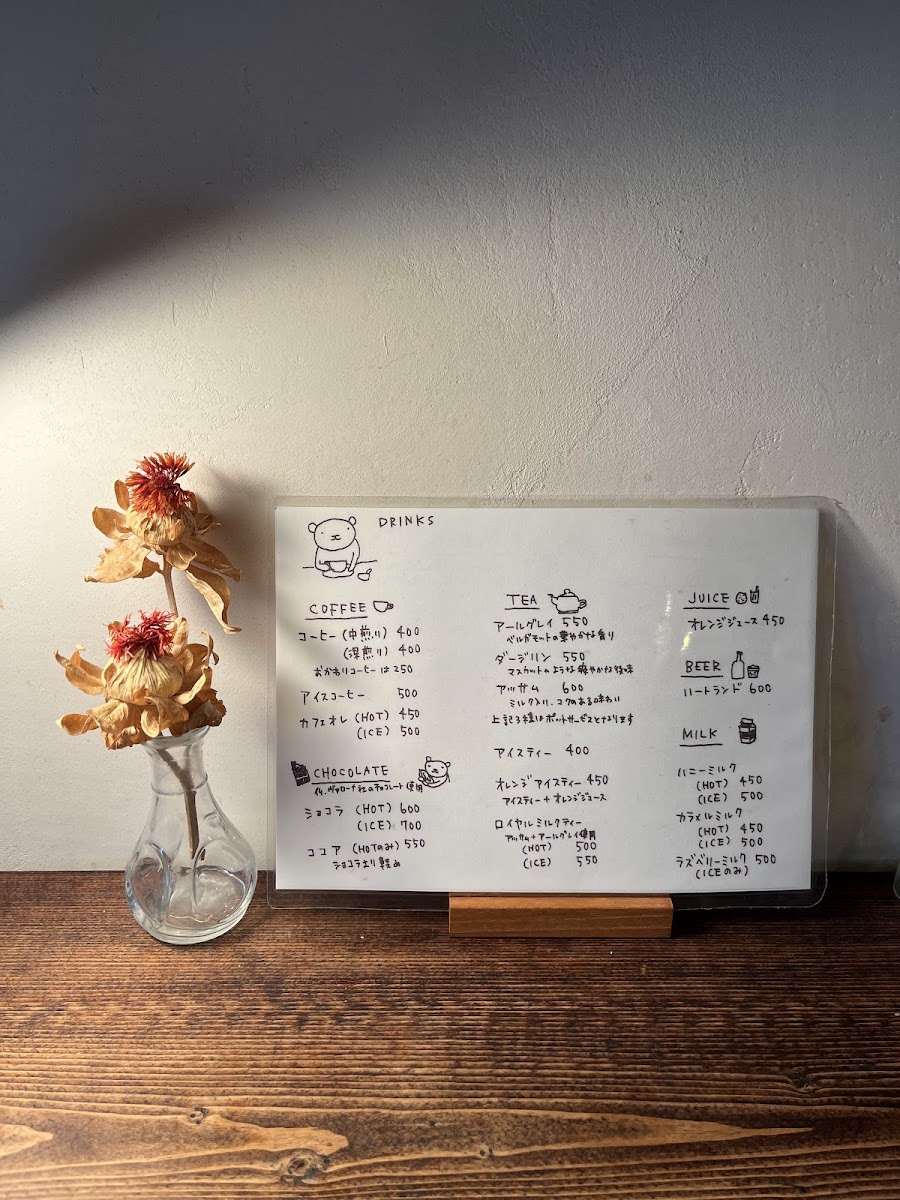 DRINKS
COFFEE
コーヒー (中煎り) 400
(深煎り) 400
おかわりコーヒーは250
アイスコーヒー 500
カフェオレ (HOT) 450
(ICE) 500
CHOCOLATE
仏.ヴァローナ社のチョコレート使用
ショコラ (HOT) 600
(ICE) 700
ココア (HOTのみ) 550
ショコラより軽め
TEA
アールグレイ 550
ベルガモットの華やかな香り
ダージリン 550
マスカットのような爽やかな後味
アッサム 600
ミルク入り、コクのある味わい
上記3種はポットサービスとなります
アイスティー 400
オレンジアイスティー 450
アイスティー + オレンジジュース
ロイヤルミルクティー
アッサム+アールグレイ使用
(HOT) 500
(ICE) 550
JUICE
オレンジジュース 450
BEER
ハートランド 600
MILK
ハニーミルク
(HOT) 450
(ICE) 500
カラメルミルク
(HOT) 450
(ICE) 500
ラズベリーミルク 500
(ICEのみ)